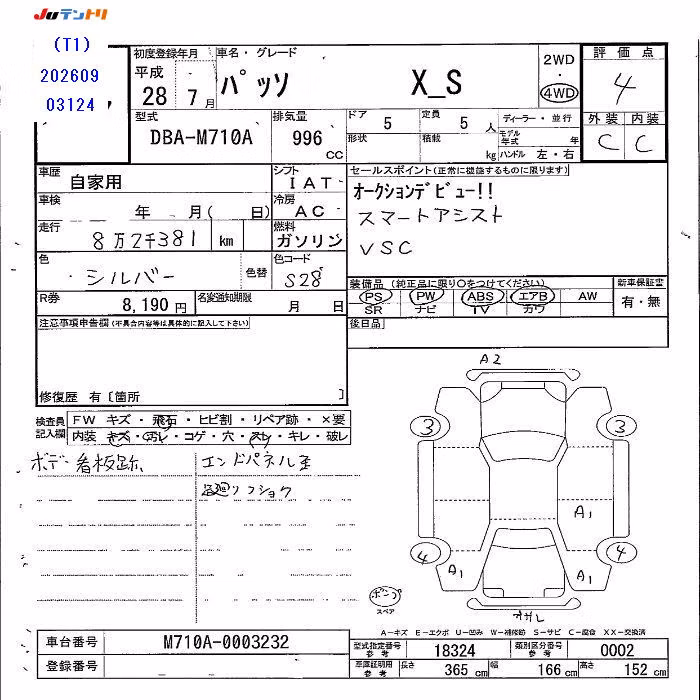 Juテントリ
(T1)
202609
03124
初度登録年月
平成
28 - 7月
車名・グレード
パッソ X_S
2WD
・
4WD
評価点
4
外装 内装
C C
型式
DBA-M710A
排気量
996
CC
ドア 5
形状
定員 5 人
積載 kg
ディーラー・並行
モデル年式 年
ハンドル 左・右
車歴
自家用
シフト
IAT
車検
年 月( 日)
冷房
AC
走行
8万2千381 km
燃料
ガソリン
色
シルバー
色替
色コード
S28
R券
8,190円
名変通知期限
月 日
セールスポイント(正常に機能するものに限ります)
オークションデビュー!!
スマートアシスト
VSC
装備品(純正品に限り○をつけてください)
PS PW ABS エアB AW
SR ナビ TV カワ
新車保証書
有・無
後日品
注意事項申告欄(不具合内容等は具体的に記入して下さい)
修復歴 有〔箇所 〕
検査員
記入欄
FW キズ・飛石・ヒビ割・リペア跡・×要
内装 キズ・汚レ・コゲ・穴・スレ・キレ・破レ
ボデー看板跡
エンドパネル歪
リフショク
A2
3
3
A1
4
4
A1
A1
スペア
A-キズ E-エクボ U-凹み W-補修跡 S-サビ C-腐食 XX-交換済
車台番号
M710A-0003232
登録番号
型式指定番号
参考
18324
類別区分番号
参考
0002
車庫証明用
参考
長さ 365 cm
幅 166 cm
高さ 152 cm